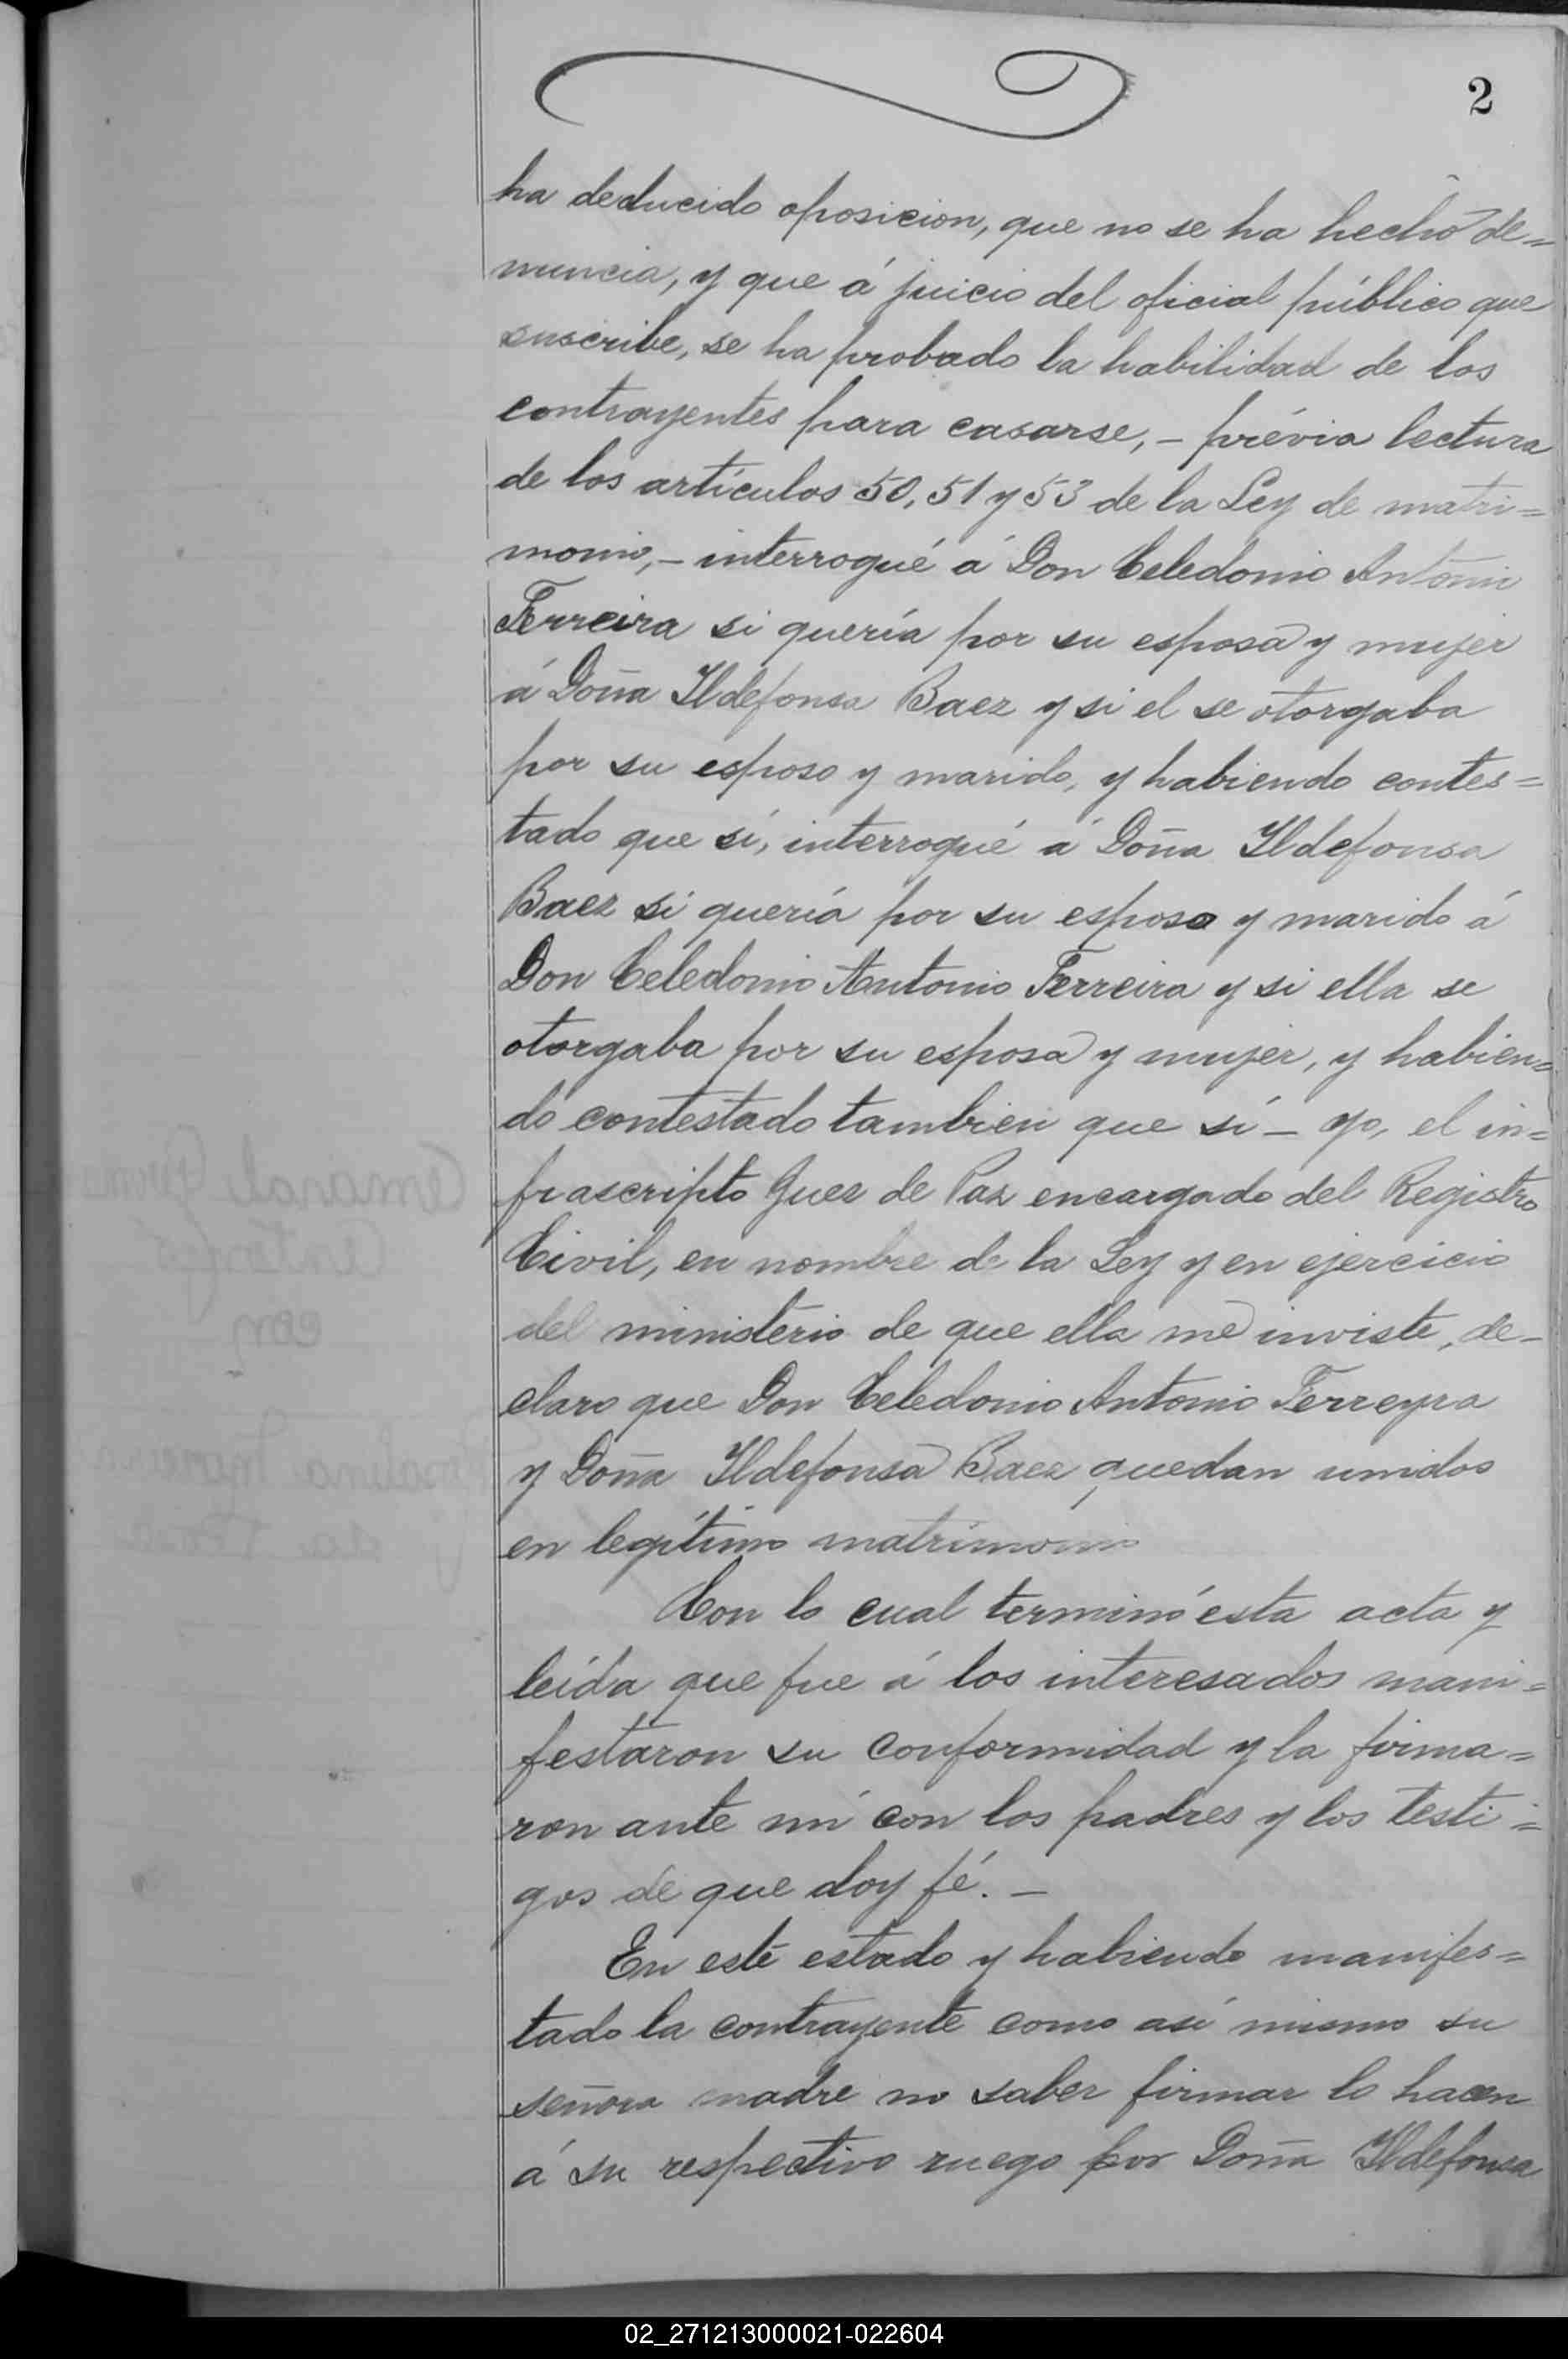 2
ha deducido oposicion, que no se ha hecho de=
nuncia, y que á juicio del oficial público que
suscribe, se ha probado la habilidad de los
contrayentes para casarse, – prévia lectura
de los artículos 50, 51 y 53 de la Ley de matri=
monio, – interrogué á Don Celedonio Antonio
Ferreira si quería por su esposa y mujer
á Doña Ildefonsa Baez y si el se otorgaba
por su esposo y marido, y habiendo contes=
tado que sí, interrogué á Doña Ildefonsa
Baez si quería por su esposo y marido á
Don Celedonio Antonio Ferreira y si ella se
otorgaba por su esposa y mujer, y habien=
do contestado tambien que sí – yo, el in=
frascripto Juez de Paz encargado del Registro
Civil, en nombre de la Ley y en ejercicio
del ministerio de que ella me inviste, de–
claro que Don Celedonio Antonio Ferreyra
y Doña Ildefonsa Baez quedan unidos
en legítimo matrimonio
Con lo cual terminó esta acta y
leída que fue á los interesados mani=
festaron su conformidad y la firma=
ron ante mí con los padres y los testi=
gos de que doy fé. –
En este estado y habiendo manifes=
tado la contrayente como así mismo su
señora madre no saber firmar lo hacen
á su respectivo ruego por Doña Ildefonsa
02_271213000021-022604